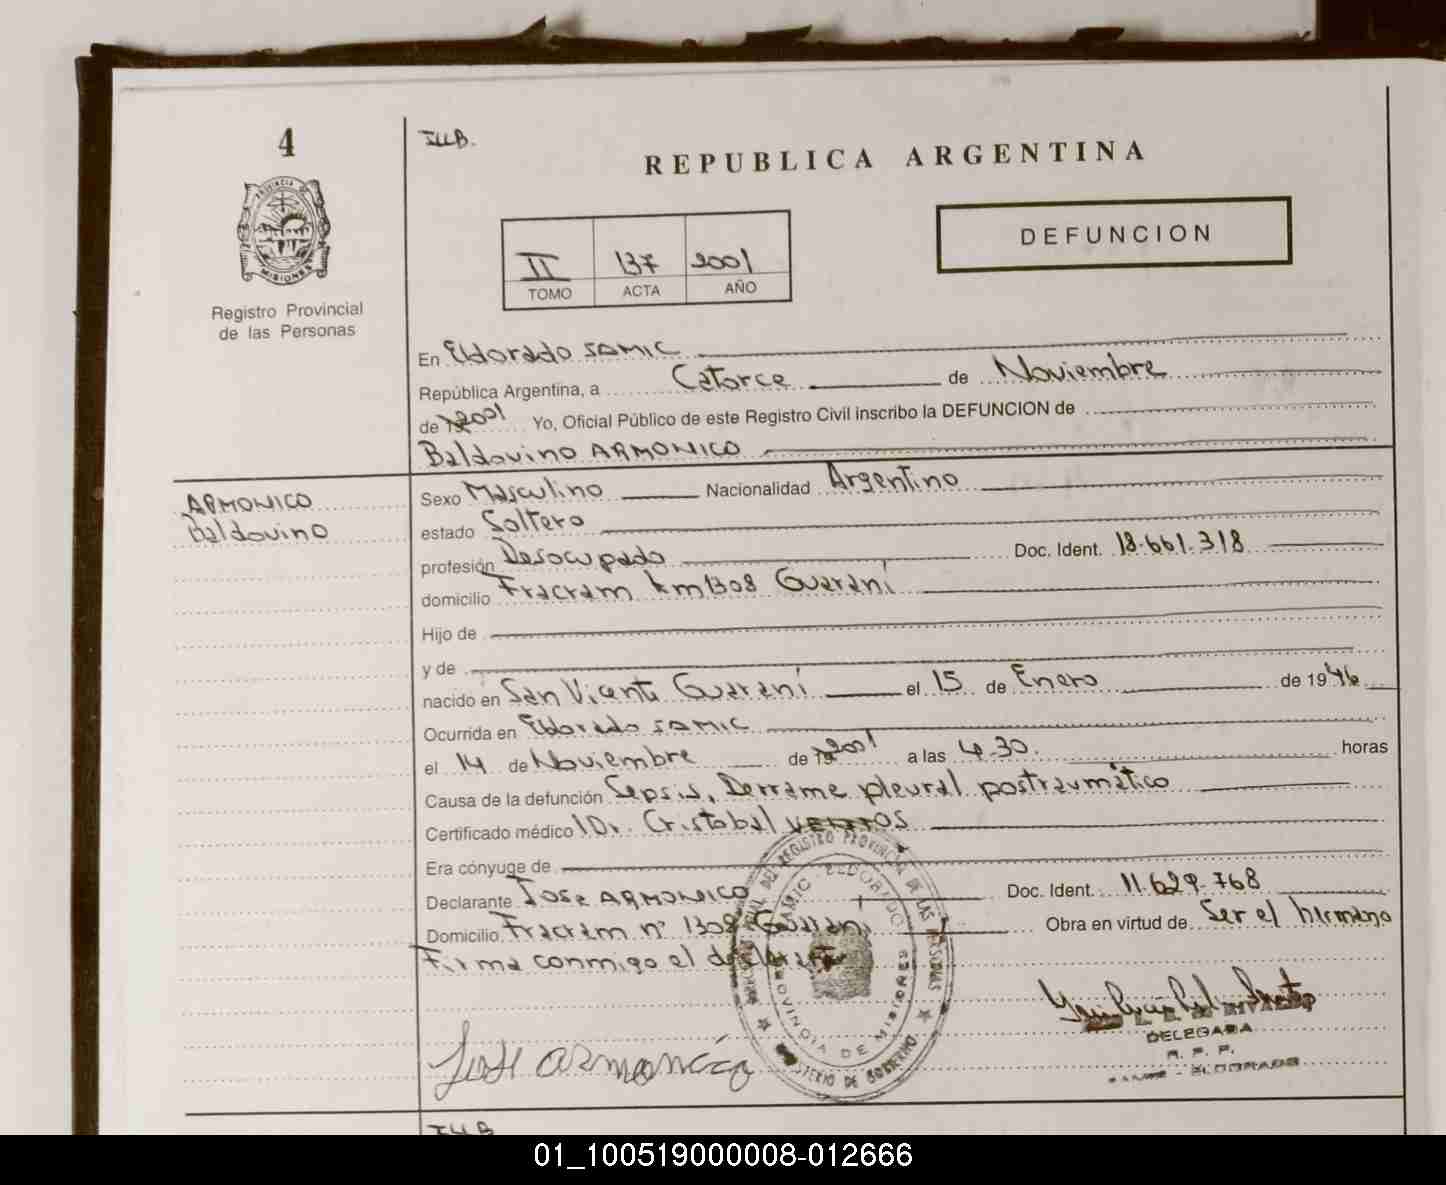 4
ILLB.
REPUBLICA ARGENTINA
PROVINCIA DE
MISIONES
DEFUNCION
II 137 2001
TOMO ACTA AÑO
Registro Provincial
de las Personas
En Eldorado SAMIC
República Argentina, a Catorce de Noviembre
de 2001 Yo, Oficial Público de este Registro Civil inscribo la DEFUNCION de
Baldovino ARMONICO
ARMONICO
Baldovino
Sexo Masculino Nacionalidad Argentino
estado Soltero
profesión Desocupado Doc. Ident. 18.661.318
domicilio Fracram km1308 Guaraní
Hijo de
y de
nacido en San Vicente Guaraní el 15 de Enero de 1946
Ocurrida en Eldorado SAMIC
el 14 de Noviembre de 2001 a las 4.30. horas
Causa de la defunción Sepsis, Derrame pleural postraumático
Certificado médico Dr. Cristobal
Era cónyuge de
Declarante José ARMONICO Doc. Ident. 11.629.768
Domicilio Fracram nº 1308 Guaraní Obra en virtud de Ser el hermano
Firma conmigo el declarante
REGISTRO PROVINCIAL DE LAS PERSONAS
SAMIC ELDORADO
PROVINCIA DE MISIONES
MINISTERIO DE GOBIERNO
José Armonico
DELEGADA
R. P. P.
SAMIC - ELDORADO
ILLB
01_100519000008-012666